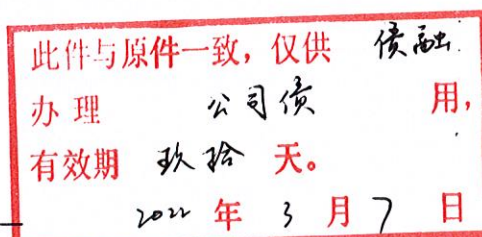 此件与原件一致，仅供 债融
办理 公司债 用，
有效期 玖拾 天。
2022 年 3 月 7 日